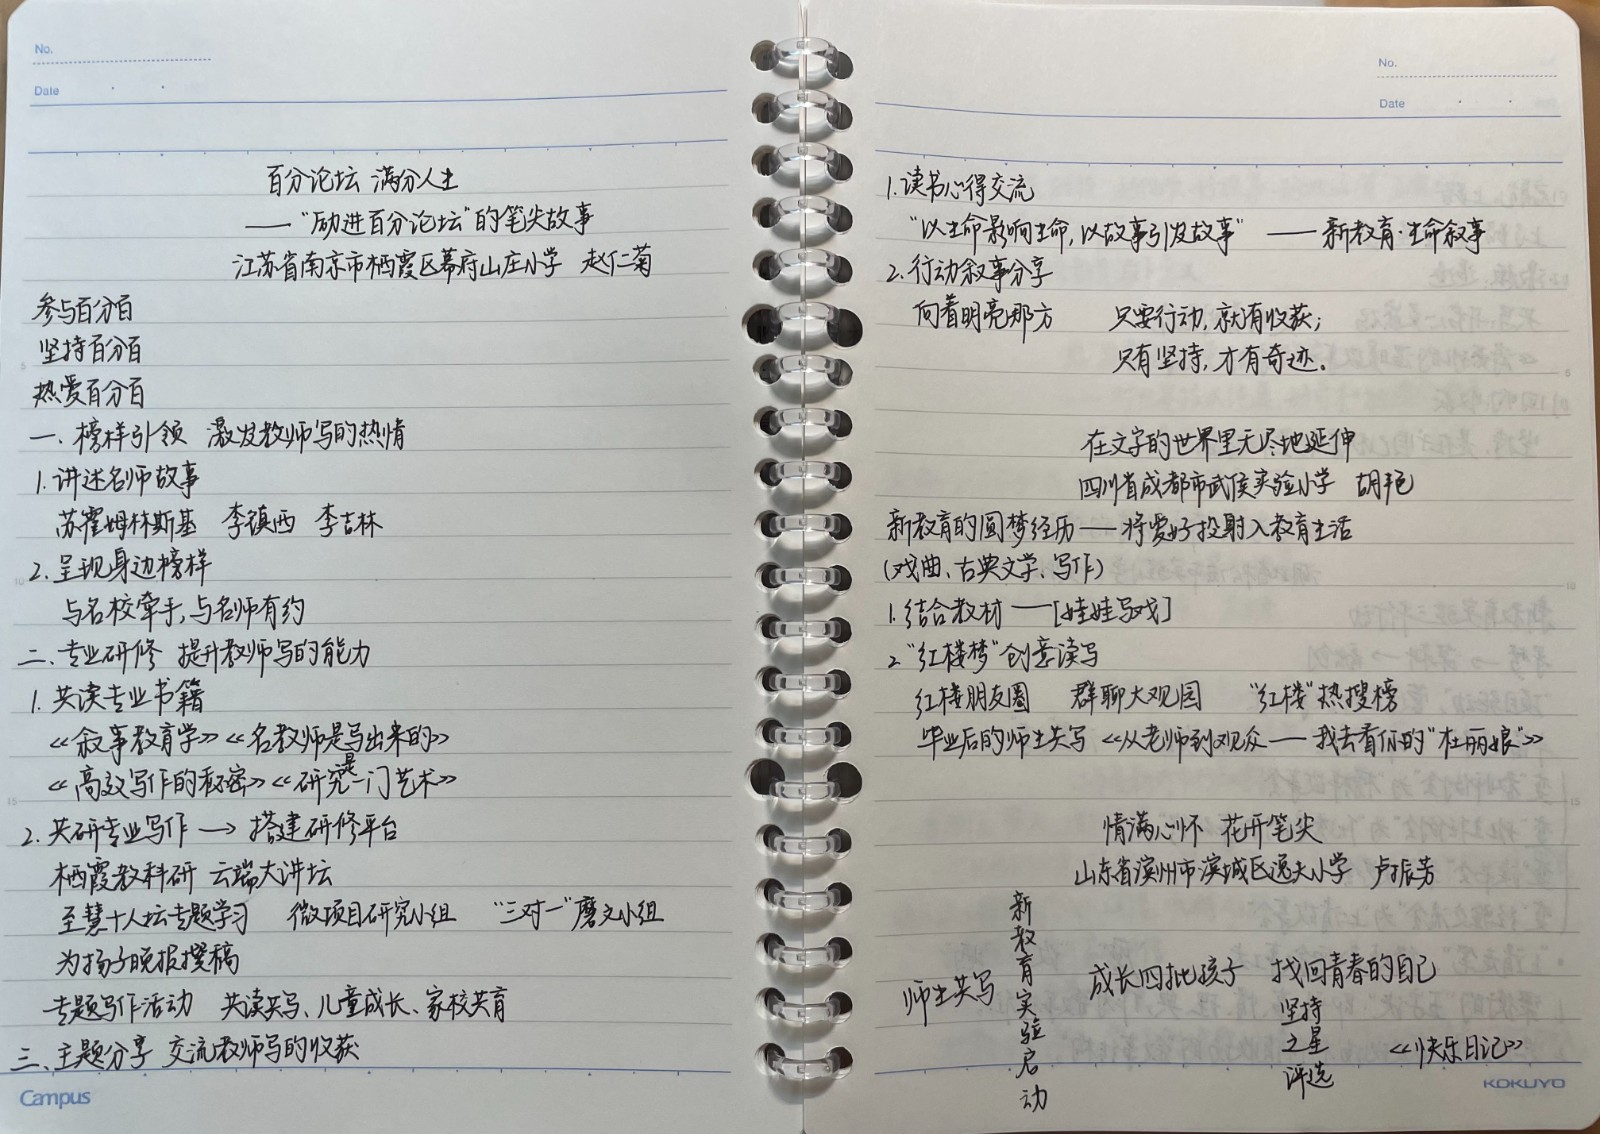 No.
Date
百分论坛 满分人生
——"励进百分论坛"的笔尖故事
江苏省南京市栖霞区幕府山庄小学 赵仁菊
参与百分百
坚持百分百
热爱百分百
一、榜样引领 激发教师写的热情
1.讲述名师故事
苏霍姆林斯基 李镇西 李吉林
2.呈现身边榜样
与名校牵手,与名师有约
二、专业研修 提升教师写的能力
1.共读专业书籍
《叙事教育学》《名教师是写出来的》
《高效写作的秘密》《研究是一门艺术》
2.共研专业写作→搭建研修平台
栖霞教科研 云端大讲坛
至慧十人坛专题学习 微项目研究小组 "三对一"磨文小组
为扬子晚报撰稿
专题写作活动 共读共写、儿童成长、家校共育
三、主题分享 交流教师写的收获
Campus
No.
Date
1.读书心得交流
"以生命影响生命,以故事引发故事"——新教育·生命叙事
2.行动叙事分享
向着明亮那方 只要行动,就有收获;
只有坚持,才有奇迹.
在文字的世界里无尽地延伸
四川省成都市武侯实验小学 胡艳
新教育的圆梦经历——将爱好投射入教育生活
(戏曲、古典文学、写作)
1.结合教材——[娃娃写戏]
2"红楼梦"创意读写
红楼朋友圈 群聊大观园 "红楼"热搜榜
毕业后的师生共写《从老师到观众——我去看你的"杜丽娘"》
情满心怀 花开笔尖
山东省滨州市滨城区逸夫小学 卢振芳
师生共写
新教育实验启动
成长四批孩子 找回青春的自己
坚持之星评选
《快乐日记》
KOKUYO